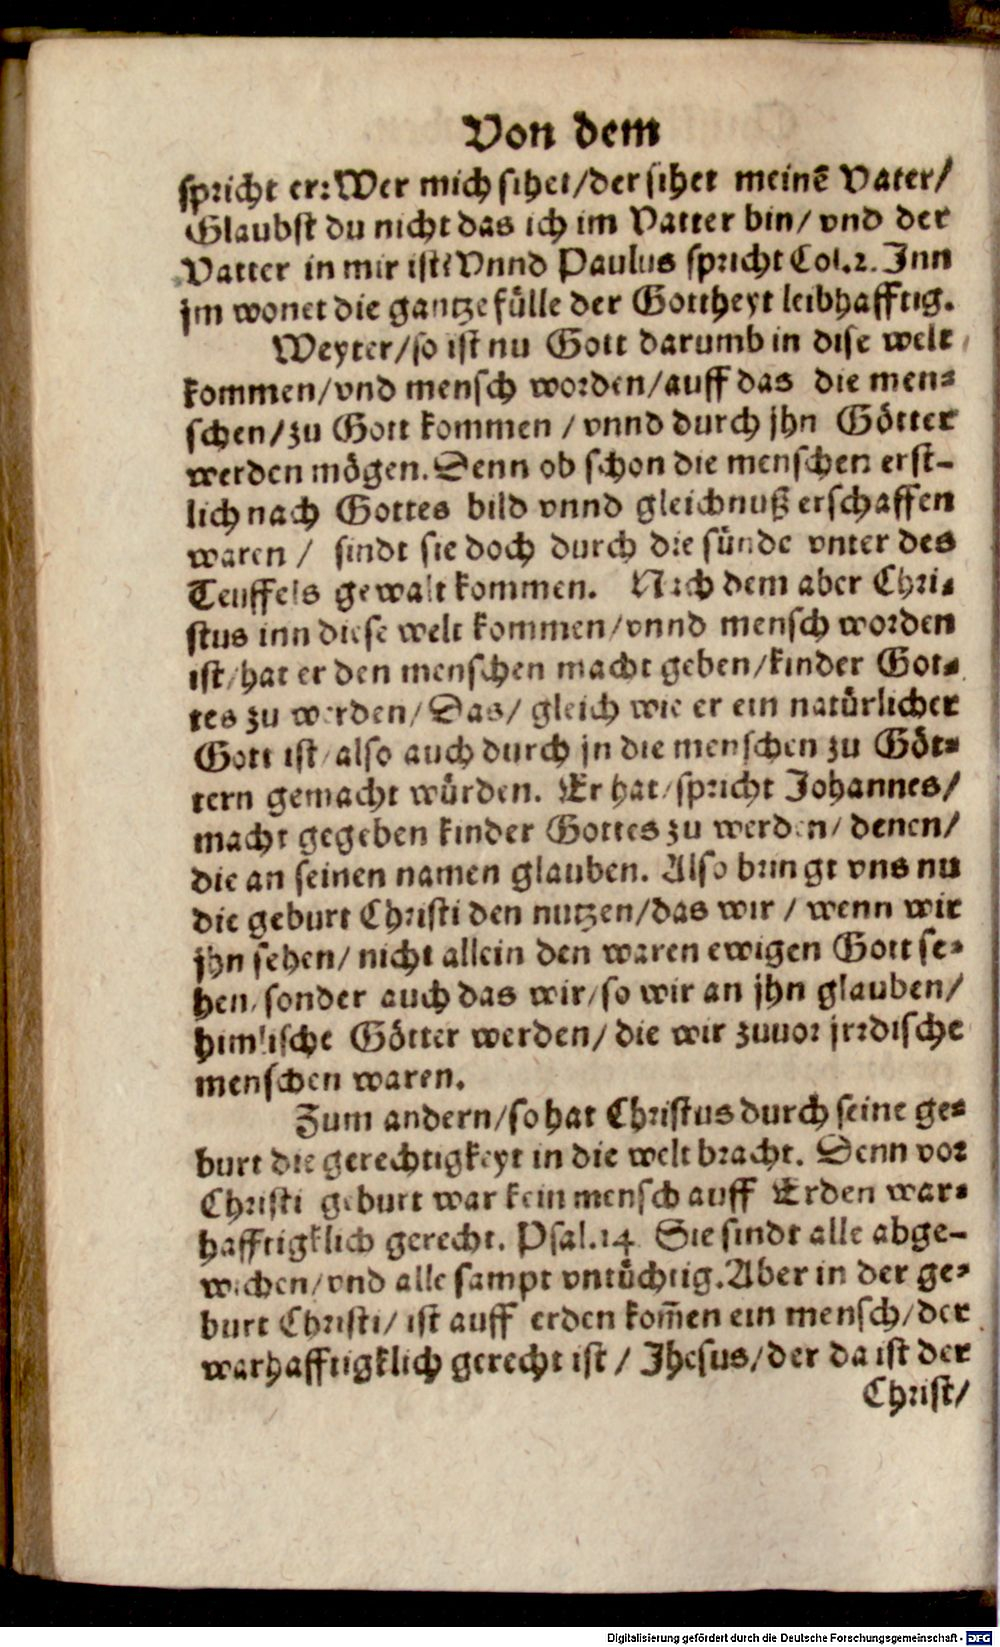 Von dem
spricht er: Wer mich sihet/der sihet meinē Vater/
Glaubst du nicht das ich im Vatter bin/ vnd der
Vatter in mir ist? Vnnd Paulus spricht Col.2. Inn
jm wonet die gantze fülle der Gottheyt leibhafftig.
Weyter/so ist nu Gott darumb in dise welt
kommen/vnd mensch worden/auff das die men-
schen/zu Gott kommen / vnnd durch jhn Götter
werden mögen. Denn ob schon die menschen erst-
lich nach Gottes bild vnnd gleichnuß erschaffen
waren / sindt sie doch durch die sünde vnter des
Teuffels gewalt kommen. Nach dem aber Chri-
stus inn diese welt kommen/vnnd mensch worden
ist/hat er den menschen macht geben/kinder Got-
tes zu werden/Das/ gleich wie er ein natürlicher
Gott ist/also auch durch jn die menschen zu Göt-
tern gemacht würden. Er hat/spricht Johannes/
macht gegeben kinder Gottes zu werden/ denen/
die an seinen namen glauben. Also bringt vns nu
die geburt Christi den nutzen/das wir / wenn wir
jhn sehen/ nicht allein den waren ewigen Gott se-
hen/sonder auch das wir/so wir an jhn glauben/
himlische Götter werden/ die wir zuuor jrrdische
menschen waren.
Zum andern/so hat Christus durch seine ge-
burt die gerechtigkeyt in die welt bracht. Denn vor
Christi geburt war kein mensch auff Erden war-
hafftigklich gerecht. Psal.14 Sie sindt alle abge-
wichen/vnd alle sampt vntüchtig. Aber in der ge-
burt Christi/ ist auff erden kom̄en ein mensch/der
warhafftigklich gerecht ist / Jhesus/der da ist der
Christ/
Digitalisierung gefördert durch die Deutsche Forschungsgemeinschaft - DFG